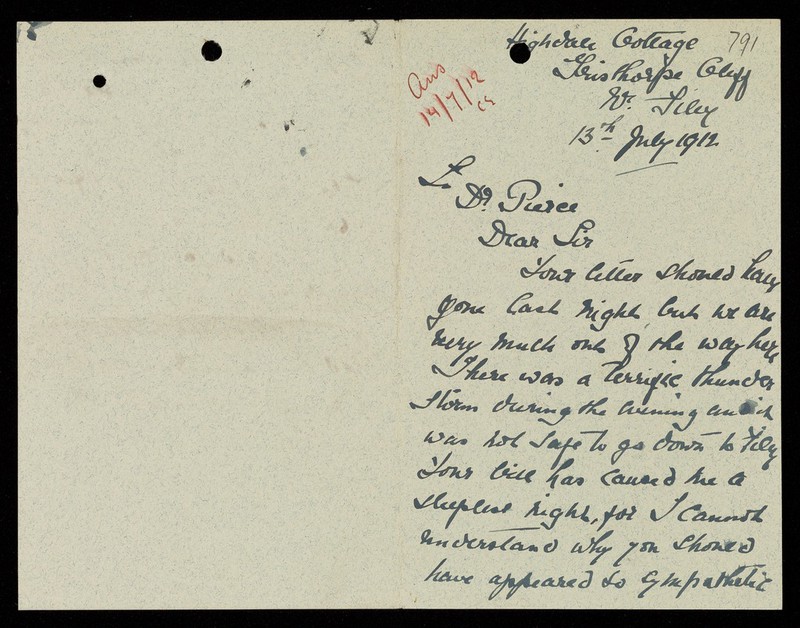 Highdale Cottage
791
Gristhorpe Cliff
Nr. Filey
13th July 1912
Ans
14/7/12
To
Dr. Pierce
Dear Sir
Your letter should have
gone last night but we are
very much out of the way here
There was a terrific thunder
storm during the evening and it
was not safe to go down to Filey
Your bill has caused me a
sleepless night, for I cannot
understand why you should
have appeared so sympathetic